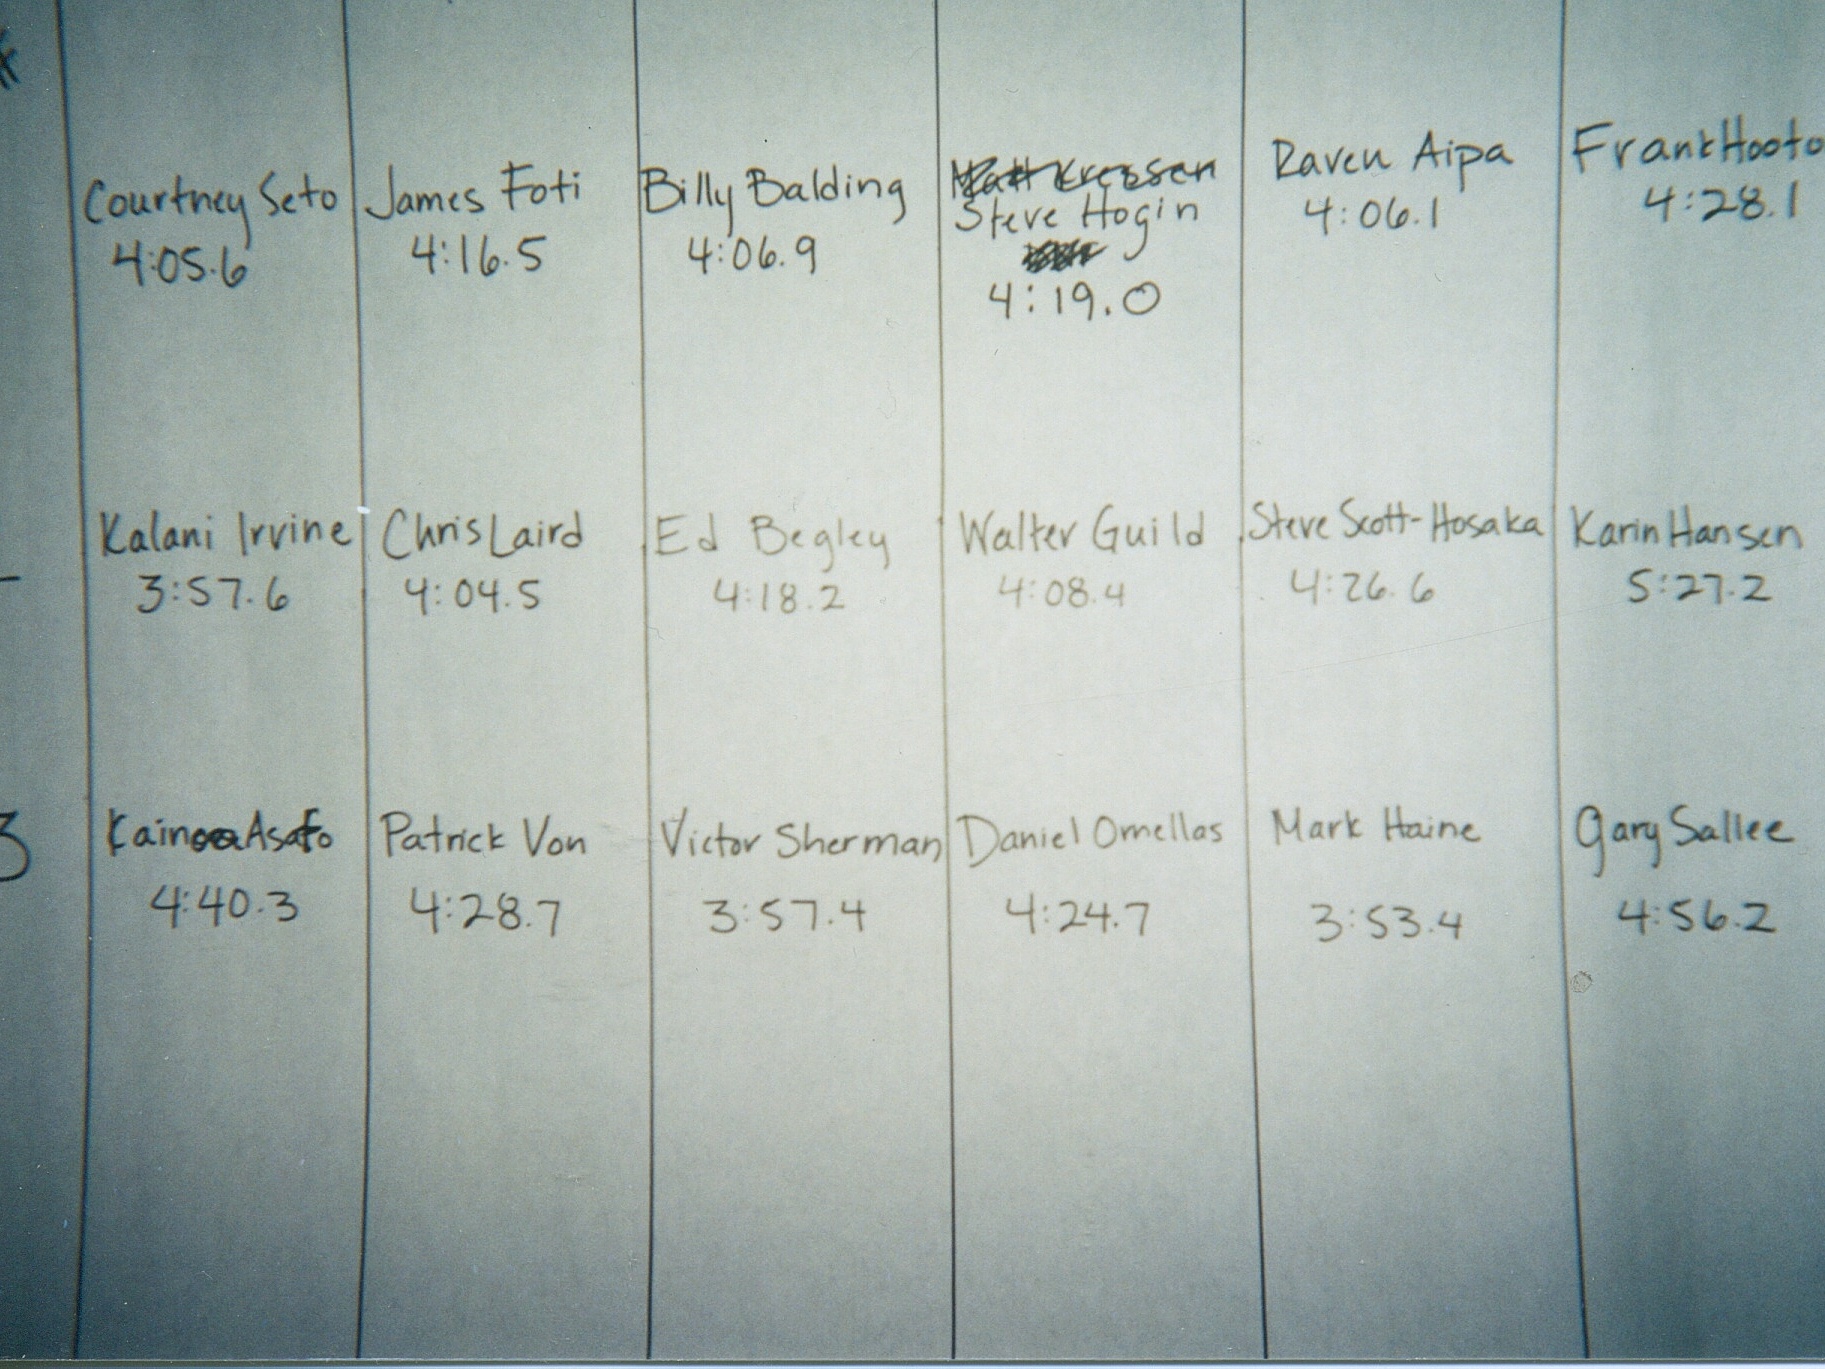 Courtney Seto
4:05.6
James Foti
4:16.5
Billy Balding
4:06.9
Steve Hogin
4:19.0
Raven Aipa
4:06.1
Frank Hooto
4:28.1
Kalani Irvine
3:57.6
Chris Laird
4:04.5
Ed Begley
4:18.2
Walter Guild
4:08.4
Steve Scott-Hosaka
4:26.6
Karin Hansen
5:27.2
3
Kainoa Asafo
4:40.3
Patrick Von
4:28.7
Victor Sherman
3:57.4
Daniel Ornellas
4:24.7
Mark Haine
3:53.4
Gary Sallee
4:56.2